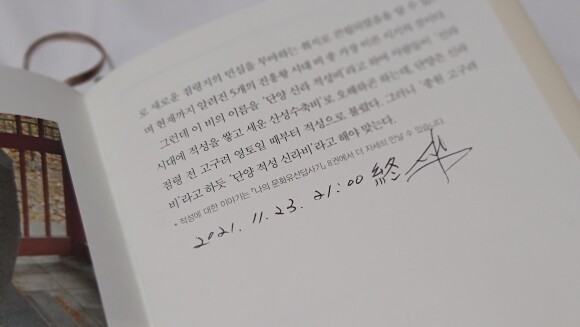 로 새로운 점령지의 민심을 무마하는 취지로 만들어졌음을 알 수 있
며 현재까지 알려진 5개의 진흥왕 시대 비 중 가장 이른 시기의 것이다.
그런데 이 비의 이름을 '단양 신라 적성비'라고 하여 사람들이 '신라
시대에 적성을 쌓고 세운 산성수축비'로 오해하곤 하는데, 단양은 신라
점령 전 고구려 영토일 때부터 적성으로 불렸다. 그러니 '중원 고구려
비'라고 하듯 '단양 적성 신라비'라고 해야 맞는다.
• 적성에 대한 이야기는 『나의 문화유산답사기』 8권에서 더 자세히 만날 수 있습니다.
2021. 11. 23. 21:00 終